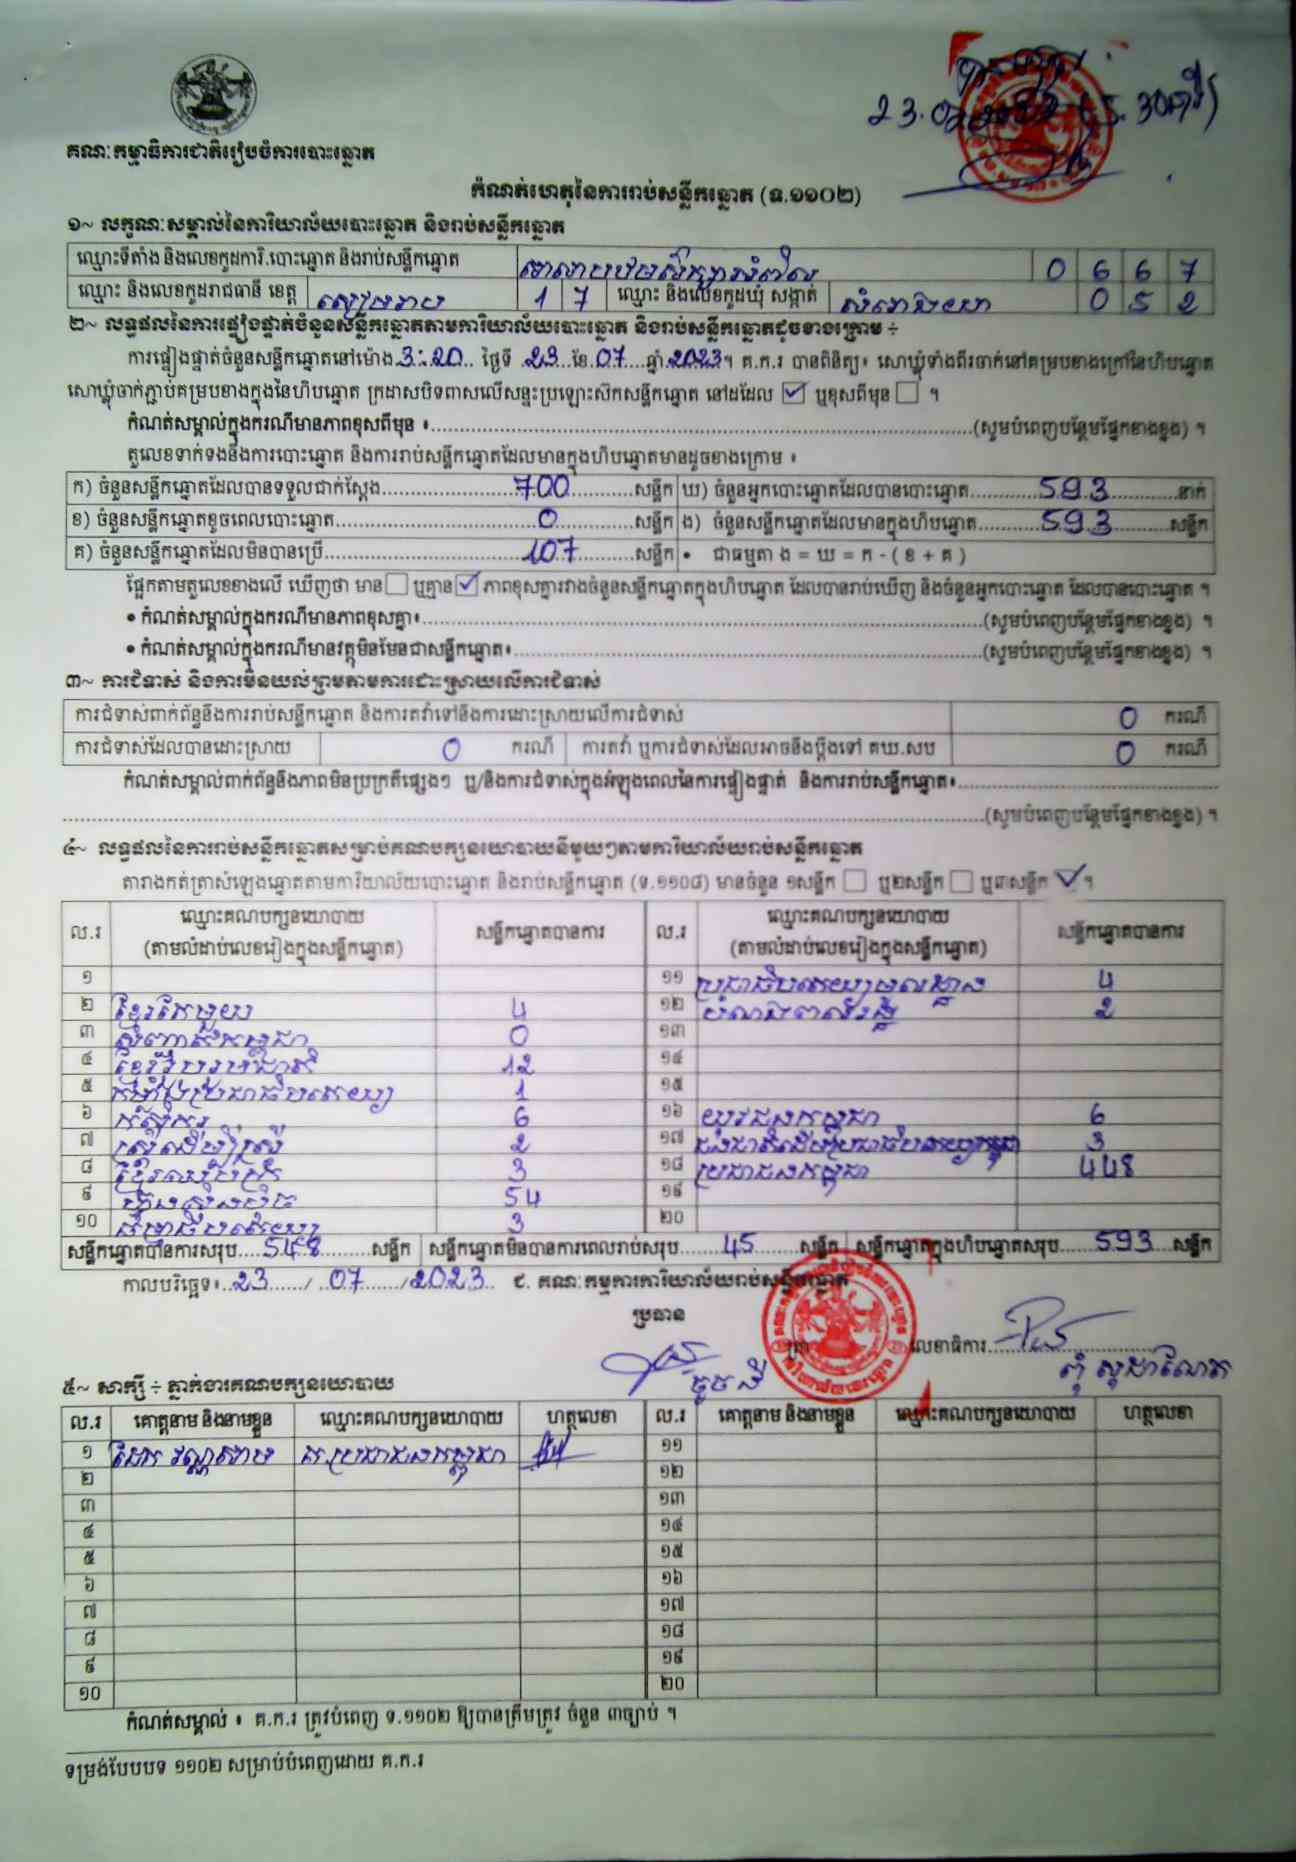 23.07.2023
គណៈកម្មាធិការជាតិរៀបចំការបោះឆ្នោត
កំណត់ហេតុនៃការរាប់សន្លឹកឆ្នោត (ទ.១១០២)
១~ លក្ខណៈសម្គាល់នៃការិយាល័យបោះឆ្នោត និងរាប់សន្លឹកឆ្នោត
ឈ្មោះទីតាំង និងលេខកូដការិ.បោះឆ្នោត និងរាប់សន្លឹកឆ្នោត 0 6 6 7
ឈ្មោះ និងលេខកូដរាជធានី ខេត្ត សៀមរាប 1 7 ឈ្មោះ និងលេខកូដឃុំ សង្កាត់ 0 5 2
២~ លទ្ធផលនៃការផ្ទៀងផ្ទាត់ចំនួនសន្លឹកឆ្នោតតាមការិយាល័យបោះឆ្នោត និងរាប់សន្លឹកឆ្នោតដូចខាងក្រោម ÷
ការផ្ទៀងផ្ទាត់ចំនួនសន្លឹកឆ្នោតនៅម៉ោង 3:20 ថ្ងៃទី 23 ខែ 07 ឆ្នាំ 2023។ គ.ក.រ បានពិនិត្យ៖ សោឃ្លុំទាំងពីរចាក់នៅគម្របខាងក្រៅនៃហិបឆ្នោត
សោឃ្លុំចាក់ភ្ជាប់គម្របខាងក្នុងនៃហិបឆ្នោត ក្រដាសបិទពាសលើសន្ទះប្រឡោះស៊កសន្លឹកឆ្នោត នៅដដែល ☑ ឬខុសពីមុន ☐ ។
កំណត់សម្គាល់ក្នុងករណីមានភាពខុសពីមុន ៖..........(សូមបំពេញបន្ថែមផ្នែកខាងខ្នង) ។
តួលេខទាក់ទងនឹងការបោះឆ្នោត និងការរាប់សន្លឹកឆ្នោតដែលមានក្នុងហិបឆ្នោតមានដូចខាងក្រោម ៖
ក) ចំនួនសន្លឹកឆ្នោតដែលបានទទួលជាក់ស្តែង.....700.....សន្លឹក ឃ) ចំនួនអ្នកបោះឆ្នោតដែលបានបោះឆ្នោត.....593.....នាក់
ខ) ចំនួនសន្លឹកឆ្នោតខូចពេលបោះឆ្នោត.....0.....សន្លឹក ង) ចំនួនសន្លឹកឆ្នោតដែលមានក្នុងហិបឆ្នោត.....593.....សន្លឹក
គ) ចំនួនសន្លឹកឆ្នោតដែលមិនបានប្រើ.....107.....សន្លឹក • ជាធម្មតា ង = ឃ = ក - ( ខ + គ )
ផ្អែកតាមតួលេខខាងលើ ឃើញថា មាន ☐ ឬគ្មាន ☑ ភាពខុសគ្នារវាងចំនួនសន្លឹកឆ្នោតក្នុងហិបឆ្នោត ដែលបានរាប់ឃើញ និងចំនួនអ្នកបោះឆ្នោត ដែលបានបោះឆ្នោត ។
• កំណត់សម្គាល់ក្នុងករណីមានភាពខុសគ្នា៖..........(សូមបំពេញបន្ថែមផ្នែកខាងខ្នង) ។
• កំណត់សម្គាល់ក្នុងករណីមានវត្ថុមិនមែនជាសន្លឹកឆ្នោត៖..........(សូមបំពេញបន្ថែមផ្នែកខាងខ្នង) ។
៣~ ការជំទាស់ និងការមិនយល់ព្រមតាមការដោះស្រាយលើការជំទាស់
ការជំទាស់ពាក់ព័ន្ធនឹងការរាប់សន្លឹកឆ្នោត និងការតវ៉ាទៅនឹងការដោះស្រាយលើការជំទាស់ 0 ករណី
ការជំទាស់ដែលបានដោះស្រាយ 0 ករណី ការតវ៉ា ឬការជំទាស់ដែលអាចនឹងប្តឹងទៅ គឃ.សប 0 ករណី
កំណត់សម្គាល់ពាក់ព័ន្ធនឹងភាពមិនប្រក្រតីផ្សេងៗ ឬ/និងការជំទាស់ក្នុងអំឡុងពេលនៃការផ្ទៀងផ្ទាត់ និងការរាប់សន្លឹកឆ្នោត៖..........
..........(សូមបំពេញបន្ថែមផ្នែកខាងខ្នង) ។
៤~ លទ្ធផលនៃការរាប់សន្លឹកឆ្នោតសម្រាប់គណបក្សនយោបាយនីមួយៗតាមការិយាល័យរាប់សន្លឹកឆ្នោត
តារាងកត់ត្រាសំឡេងឆ្នោតតាមការិយាល័យបោះឆ្នោត និងរាប់សន្លឹកឆ្នោត (ទ.១១០៨) មានចំនួន ១សន្លឹក ☐ ឬ២សន្លឹក ☐ ឬ៣សន្លឹក ☑ ។
ល.រ ឈ្មោះគណបក្សនយោបាយ សន្លឹកឆ្នោតបានការ ល.រ ឈ្មោះគណបក្សនយោបាយ សន្លឹកឆ្នោតបានការ
(តាមលំដាប់លេខរៀងក្នុងសន្លឹកឆ្នោត) (តាមលំដាប់លេខរៀងក្នុងសន្លឹកឆ្នោត)
១ ១១ ប្រជាធិបតេយ្យមូលដ្ឋាន 4
២ ខ្មែរតែមួយ 4 ១២ 2
៣ សញ្ជាតិកម្ពុជា 0 ១៣
៤ ខ្មែររួបរួមជាតិ 12 ១៤
៥ កម្លាំងប្រជាធិបតេយ្យ 1 ១៥
៦ កសិករ 6 ១៦ យុវជនកម្ពុជា 6
៧ ស្ត្រីដើម្បីស្ត្រី 2 ១៧ 3
៨ ខ្មែរឈប់ក្រ 3 ១៨ ប្រជាជនកម្ពុជា 448
៩ ហ៊្វុនស៊ិនប៉ិច 54 ១៩
១០ ធម្មាធិបតេយ្យ 3 ២០
សន្លឹកឆ្នោតបានការសរុប.....548.....សន្លឹក សន្លឹកឆ្នោតមិនបានការពេលរាប់សរុប.....45.....សន្លឹក សន្លឹកឆ្នោតក្នុងហិបឆ្នោតសរុប.....593.....សន្លឹក
កាលបរិច្ឆេទ៖ 23 / 07 / 2023 ៩. គណៈកម្មការការិយាល័យរាប់សន្លឹកឆ្នោត
ប្រធាន
លេខាធិការ..........
៥~ សាក្សី ÷ ភ្នាក់ងារគណបក្សនយោបាយ
ល.រ គោត្តនាម និងនាមខ្លួន ឈ្មោះគណបក្សនយោបាយ ហត្ថលេខា ល.រ គោត្តនាម និងនាមខ្លួន ឈ្មោះគណបក្សនយោបាយ ហត្ថលេខា
១ គ.ប្រជាជនកម្ពុជា ១១
២ ១២
៣ ១៣
៤ ១៤
៥ ១៥
៦ ១៦
៧ ១៧
៨ ១៨
៩ ១៩
១០ ២០
កំណត់សម្គាល់ ៖ គ.ក.រ ត្រូវបំពេញ ទ.១១០២ ឱ្យបានត្រឹមត្រូវ ចំនួន ៣ច្បាប់ ។
ទម្រង់បែបបទ ១១០២ សម្រាប់បំពេញដោយ គ.ក.រ